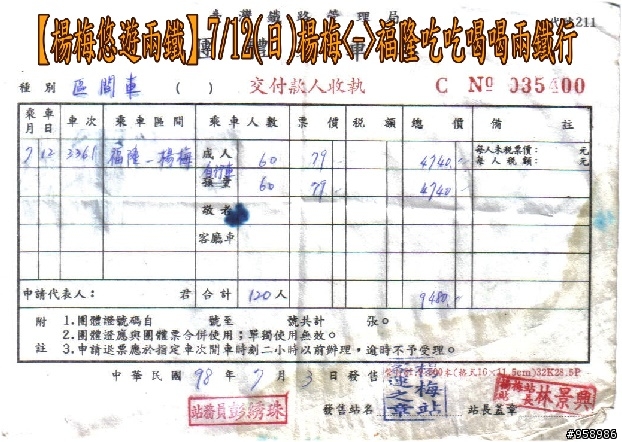 臺灣鐵路管理局
代號211
【楊梅悠遊兩鐵】7/12(日)楊梅<->福隆吃吃喝喝兩鐵行
團體 車
種別 區間車 ( ) 交付款人收執 C Nº 035400
乘車月日 車次 乘車區間 乘車人數 票價 稅額 總價 備註
7 12 3361 福隆-楊梅 成人 60 79 4740 每人未稅票價: 元
每人稅額: 元
自行車
孩童 60 79 4740
敬老
客廳車
申請代表人: 君 合計 120人 9480
附註
1.團體證號碼自 號至 號共計 張。
2.團體證應與團體票合併使用;單獨使用無效。
3.申請退票應於指定車次開車時刻二小時以前辦理,逾時不予受理。
中華民國 98年 7月 3日發售
(格式16×11.5cm)32K28.5P
站務員彭綉珠
發售站名
楊梅站
站長蓋章
楊梅站站長 林景興
#958986